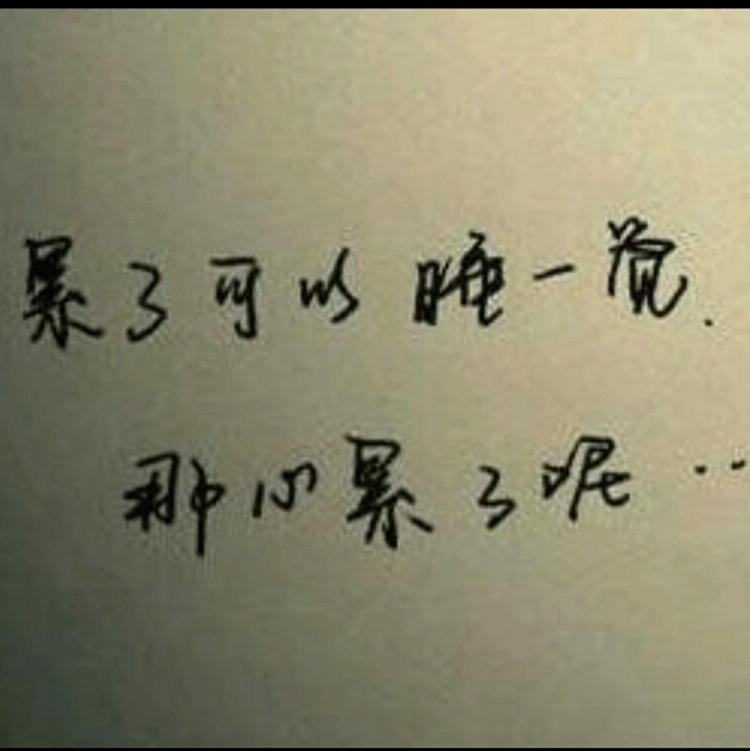 累了可以睡一觉.
那心累了呢..